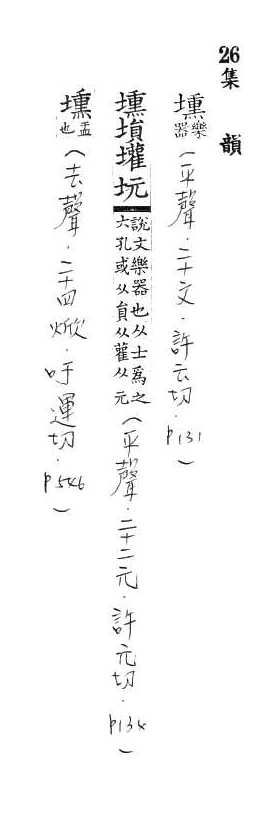 26集 韻
壎樂器(平聲.二十文.許云切.P131)
壎塤壦坃說文樂器也从土爲之六孔或从員从雚从元(平聲.二十二元.許元切.P134)
壎盂也(去聲.二十四焮.吁運切.P546)